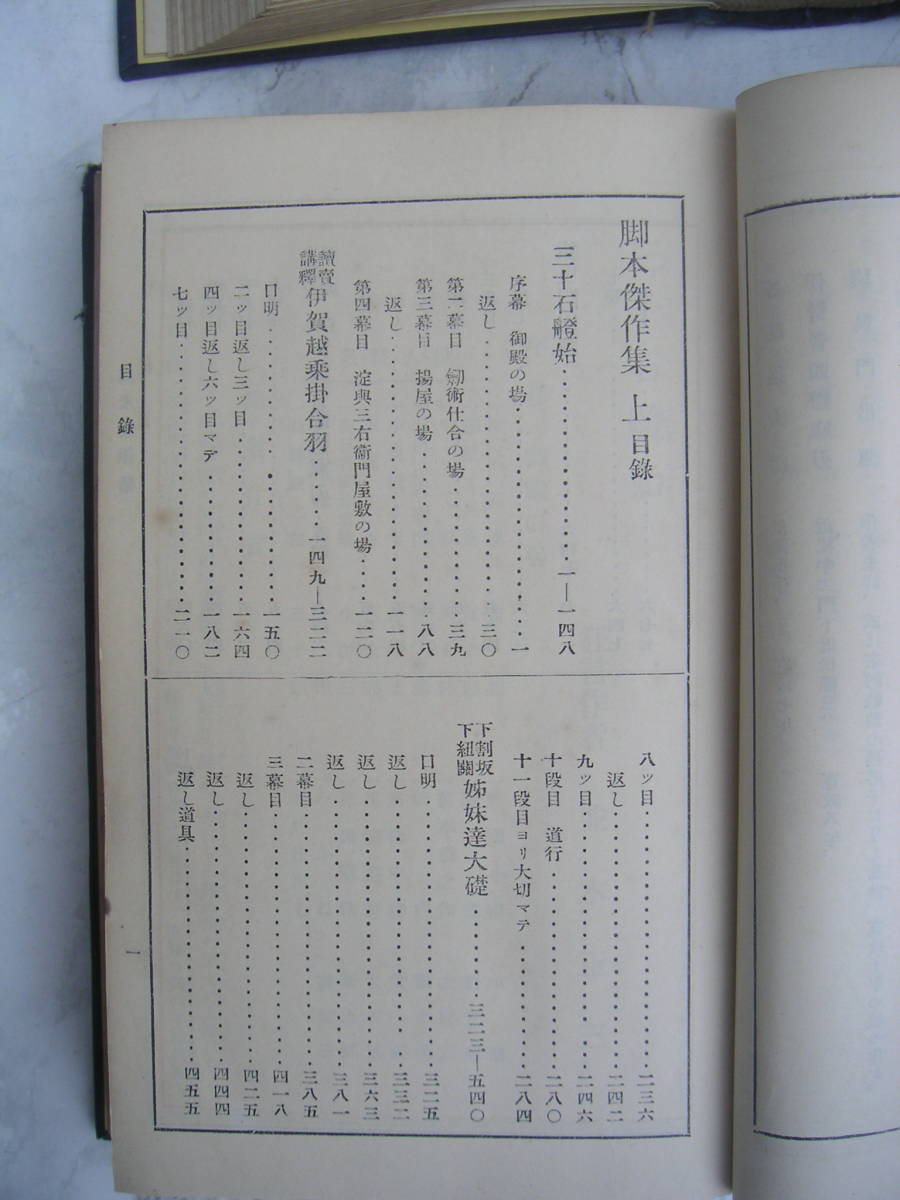 脚本傑作集　上目錄
三十石艠始・・・・・・・・・・・・・・・一―一四八
序幕　御殿の場・・・・・・・・・・・・・・・一
返し・・・・・・・・・・・・・・・三〇
第二幕目　劒術仕合の場・・・・・・・・・三九
第三幕目　揚屋の場・・・・・・・・・・・八八
返し・・・・・・・・・・・・・・・一一八
第四幕目　淀與三右衞門屋敷の場・・・・一二〇
讀賣講釋伊賀越乘掛合羽・・・・・・一四九―三二二
口明・・・・・・・・・・・・・・・一五〇
二ッ目返し三ッ目・・・・・・・・・・・一六四
四ッ目返し六ッ目マデ・・・・・・・・・一八二
七ッ目・・・・・・・・・・・・・・・二一〇
八ッ目・・・・・・・・・・・・・・・二三六
返し・・・・・・・・・・・・・・・二四二
九ッ目・・・・・・・・・・・・・・・二四六
十段目　道行・・・・・・・・・・・・二八〇
十一段目ヨリ大切マテ・・・・・・・・・二八四
下割坂下紐關姊妹達大礎・・・・・・三二三―五四〇
口明・・・・・・・・・・・・・・・三二五
返し・・・・・・・・・・・・・・・三三二
返し・・・・・・・・・・・・・・・三六三
返し・・・・・・・・・・・・・・・三八一
二幕目・・・・・・・・・・・・・・・三八五
三幕目・・・・・・・・・・・・・・・四一八
返し・・・・・・・・・・・・・・・四二五
返し・・・・・・・・・・・・・・・四四四
返し道具・・・・・・・・・・・・・四五五
目錄
一